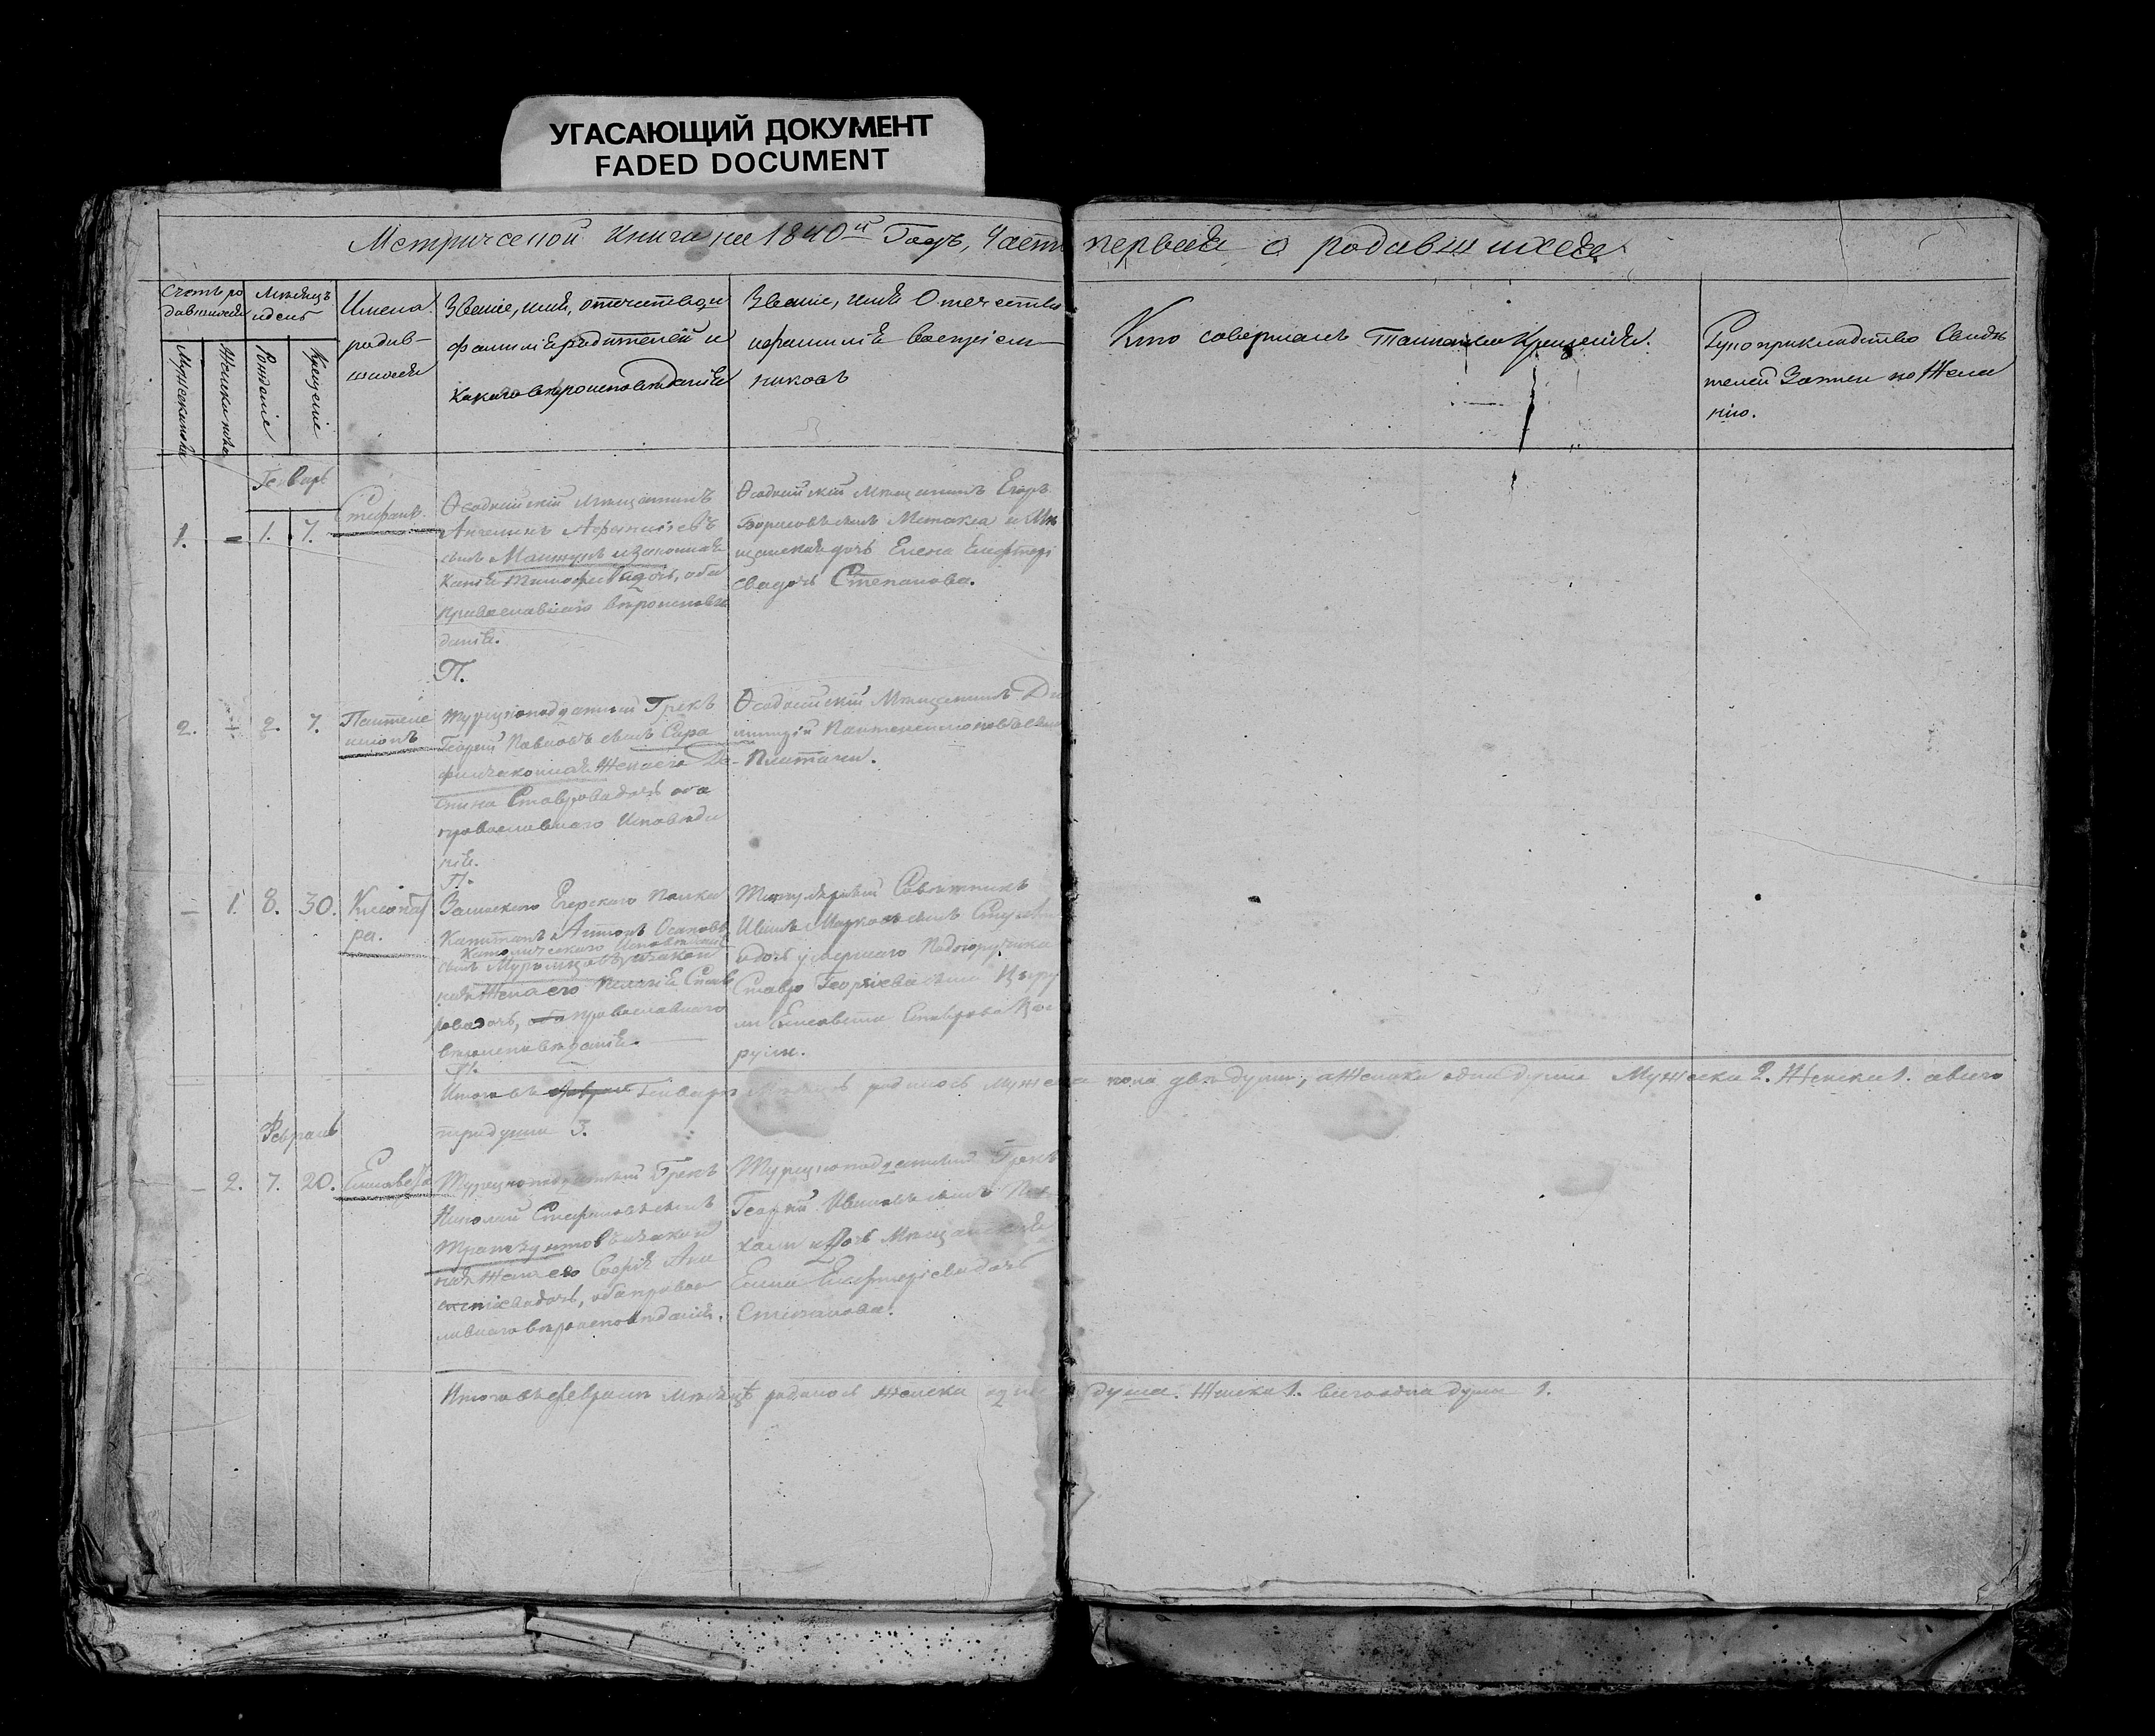 УГАСАЮЩИЙ ДОКУМЕНТ
FADED DOCUMENT
Метрической Книги на 1840й Годъ, Часть первая о родившихся
Счетъ ро
дившихся
Мужеска пола
Женска пола
Месяцъ
и день
Рождение
Крещение
Имена
родив-
шихся
Звание, имя, отчество, и
фамилия родителей и
какого вероисповедания
Звание, имя Отечество
и фамилия восприем-
никовъ
Кто совершалъ Таинство Крещения.
Рукоприкладство Свиде
телей Записи по Жела
нию.
Генварь
1. - 1. 7.
Стефанъ.
Ѳеодосийский мещанинъ
Ангелинъ Афанасиевъ
сынъ и законная
дочь, оба
православнаго вероиспове
дания.
П.
Ѳеодосийский мещанинъ Егоръ
Борисовъ сынъ Метакса и Ме
щанская дочь Елена Елефтері
ева дочь Степанова.
2. - 2. 7.
Пантеле
имонъ
Турецкоподданный Грекъ
Георгий Павловъ сынъ Сара
фи и законная Жена его Де
спина Ставрова дочь оба
православнаго Исповеда
ния.
П.
Ѳеодосийский Мещанинъ Ди
митрій Пантелеимоновъ сынъ
- 1. 8. 30.
Клеопат
ра.
Егерскаго Полка
Капитанъ Антонъ Осиповъ
Католическаго Исповедания
сынъ и закон
ная Жена его Пелагия Став
рова дочь, оба православнаго
вероисповедания.
П.
Титулярный Советникъ
Иванъ Марковъ сынъ
и дочь умершаго Подпоручика
Ставро Георгиева сына
Елисавета Ставрова
Итого въ Генваре Месяце родилось мужеска пола две души, а Женска одна душа Мужеска 2. Женска 1. а всего
три души 3.
Февраль
- 2. 7. 20.
Елисавета
Турецкоподданный Грекъ
Николай Стефановъ сынъ
и закон
ная Жена его София Ана
стасиева дочь, оба право
славнаго вероисповедания.
Турецкоподданный Грекъ
Георгий Ивановъ сынъ
и Дочь Мещанская
Елена Елефтериева дочь
Степанова.
Итого въ феврале месяце родилось женска одна душа. Женска 1. всего одна душа 1.